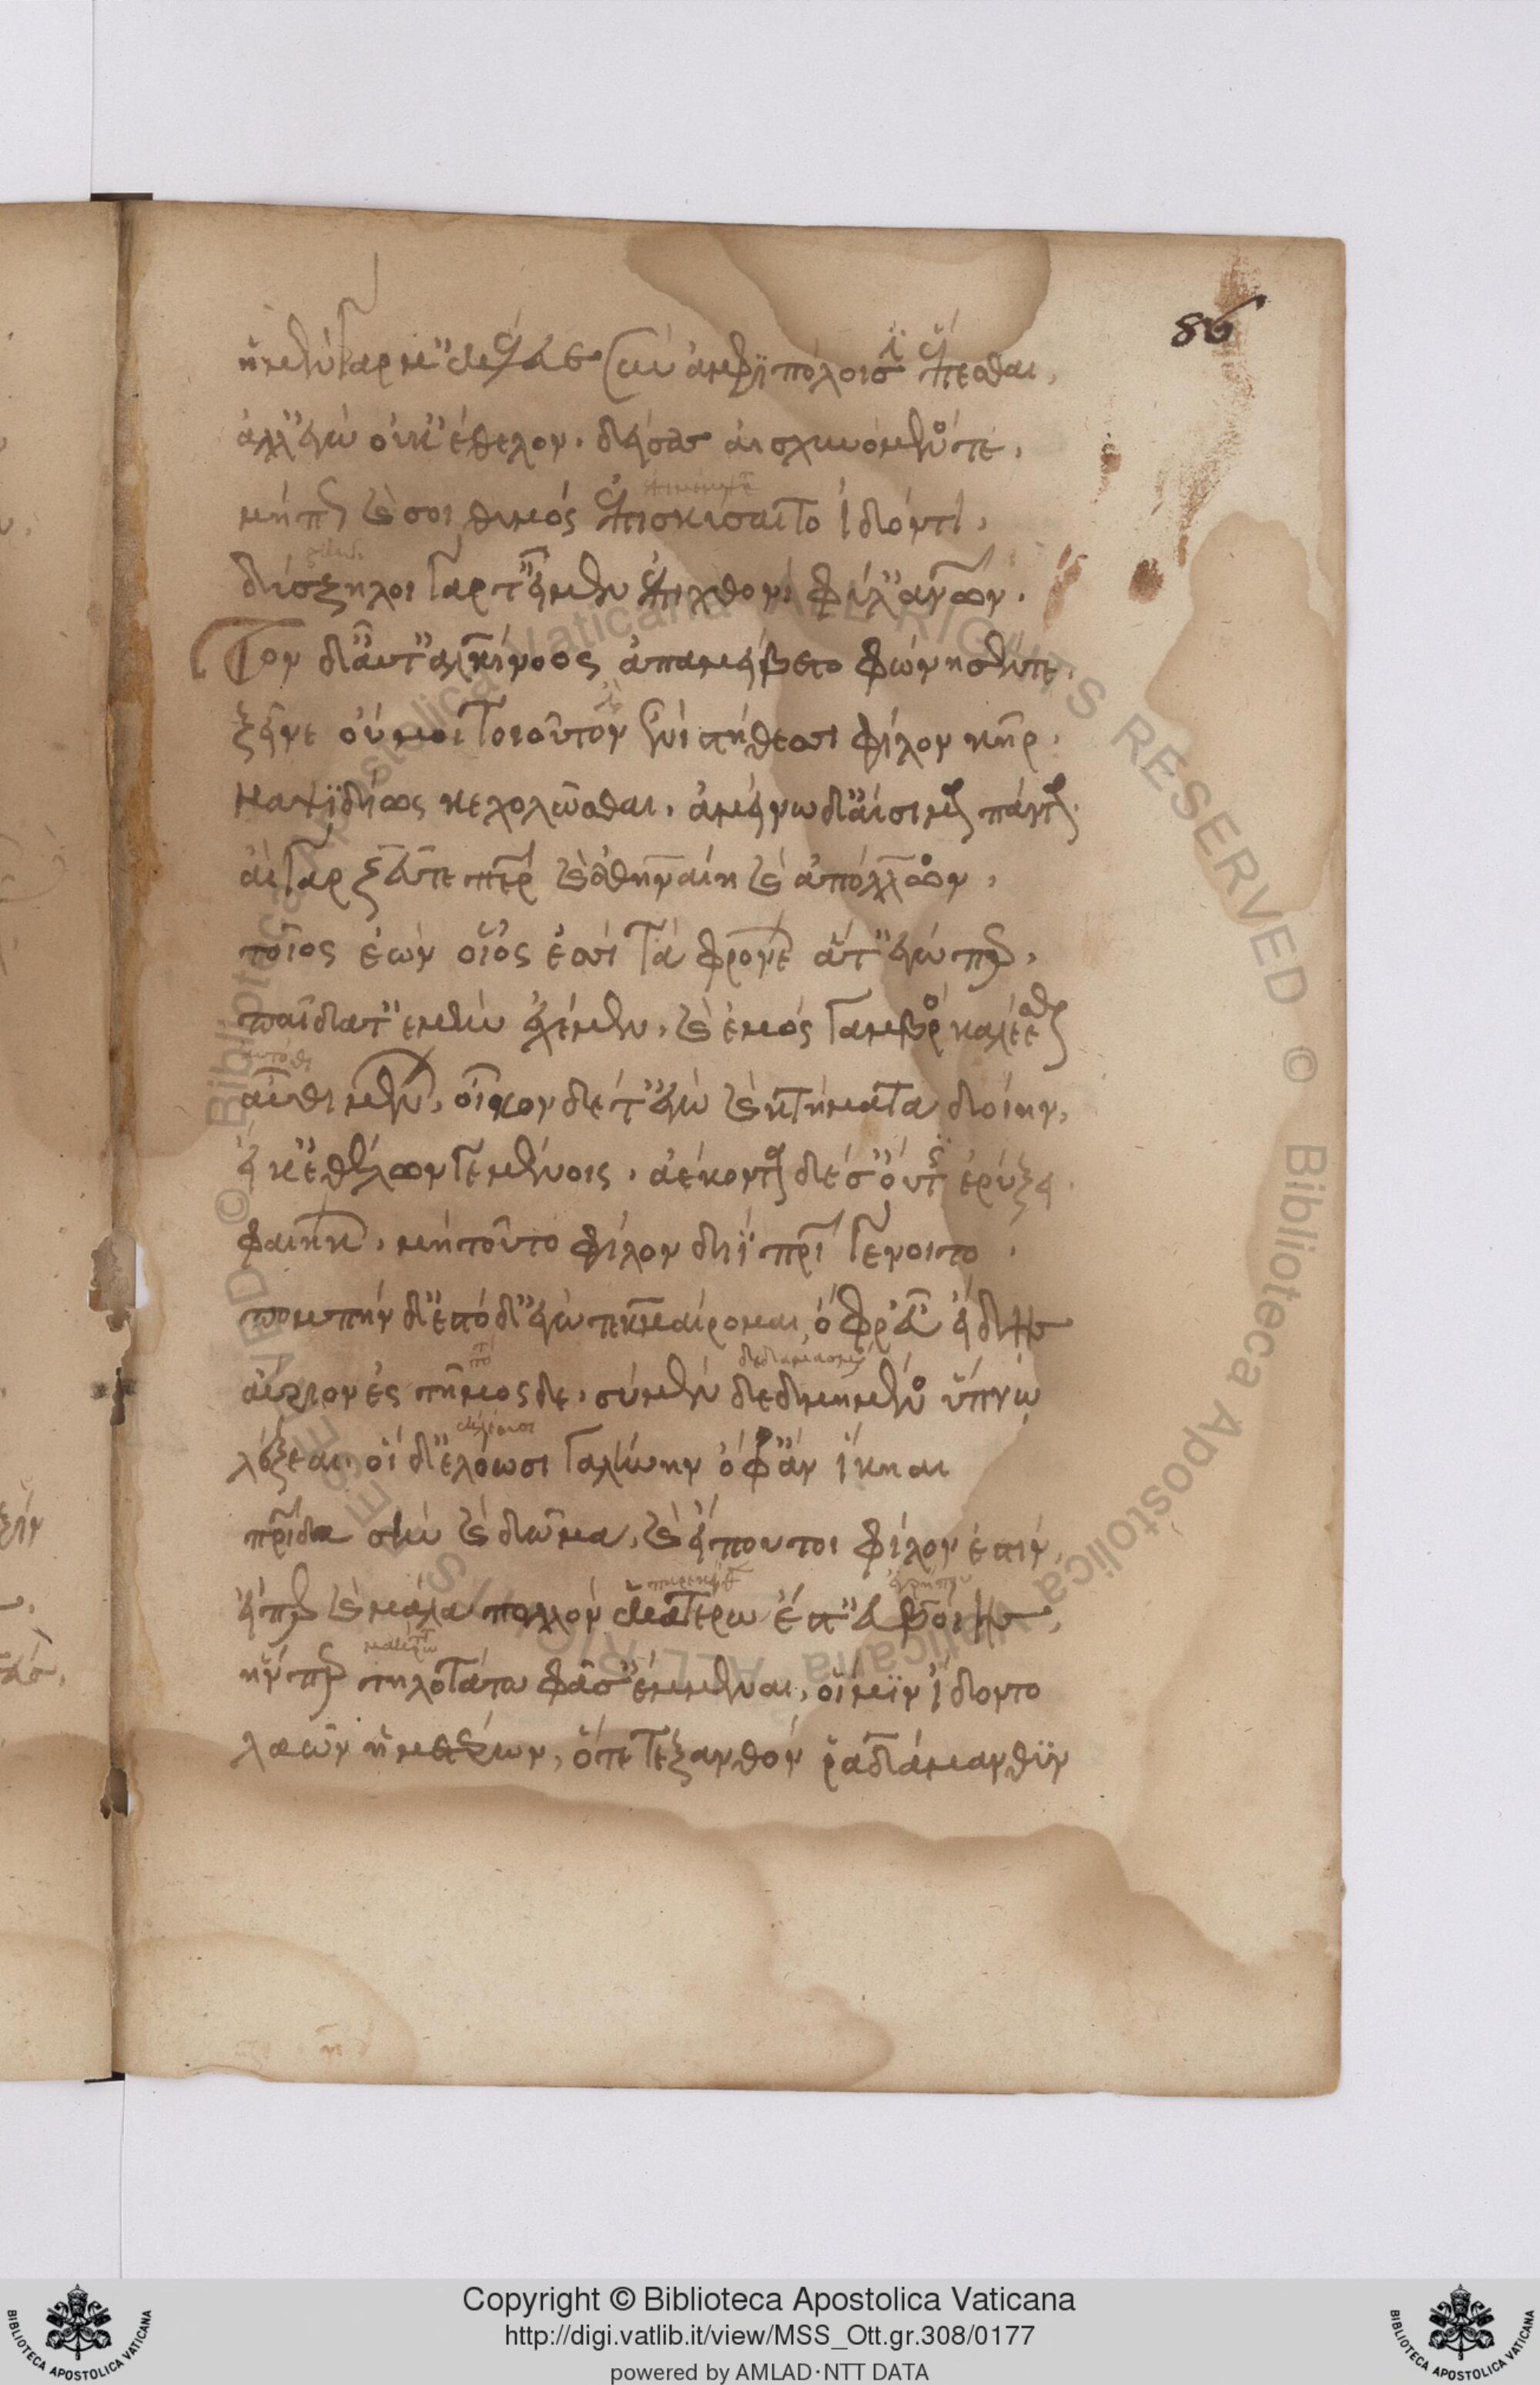 86
ἡ μὲν γάρ μ' ἐκέλευε σὺν ἀμφιπόλοισιν ἕπεσθαι,
ἀλλ' ἐγὼ οὐκ ἔθελον δείσας αἰσχυνόμενός τε,
μή πως καὶ σοὶ θυμὸς ἐπισκύσαιτο ἰδόντι,
δύσζηλοι γάρ τ' εἰμὲν ἐπὶ χθονὶ φῦλ' ἀνθρώπων.
Τὸν δ' αὖτ' ἀλκίνοος ἀπαμείβετο φώνησέν τε,
ξεῖνε οὔ μοι τοιοῦτον ἐνὶ στήθεσσι φίλον κῆρ.
μαψιδίως κεχολῶσθαι, ἀμείνω δ' αἴσιμα πάντα.
αἲ γὰρ ζεῦ τε πάτερ καὶ ἀθηναίη καὶ ἄπολλον,
τοῖος ἐὼν οἷός ἐσσι τά τε φρονέων ἅ τ' ἐγώ περ,
παῖδά τ' ἐμὴν ἐχέμεν, καὶ ἐμὸς γαμβρὸς καλέεσθαι
αὐτόθι
αὖθι μένων, οἶκον δέ τ' ἐγὼ καὶ κτήματα δοίην,
εἴ κ' ἐθέλων γε μένοις, ἀέκοντα δέ σ' οὔτις ἐρύξει
φαιήκων, μὴ τοῦτο φίλον διὶ πατρὶ γένοιτο.
πομπὴν δ' ἐς τόδ' ἐγὼ τεκμαίρομαι, ὄφρ' εὖ εἰδῇς
αὔριον ἐς τῆμος δὲ, σὺ μὲν δεδμημένος ὕπνῳ
λέξεαι, οἱ δ' ἐλόωσι γαλήνην ὄφρ' ἂν ἵκηαι
πατρίδα σὴν καὶ δῶμα, καὶ εἴ που τοι φίλον ἐστίν,
εἴπερ καὶ μάλα πολλὸν ἑκατέρω ἔστ' εὐβοίης,
τήνπερ τηλοτάτω φάσ' ἔμμεναι, οἵ μιν ἴδοντο
λαῶν ἡμετέρων, ὅτε τε ξανθὸν ῥαδάμανθυν
Copyright © Biblioteca Apostolica Vaticana
http://digi.vatlib.it/view/MSS_Ott.gr.308/0177
powered by AMLAD·NTT DATA
BIBLIOTECA APOSTOLICA VATICANA
BIBLIOTECA APOSTOLICA VATICANA